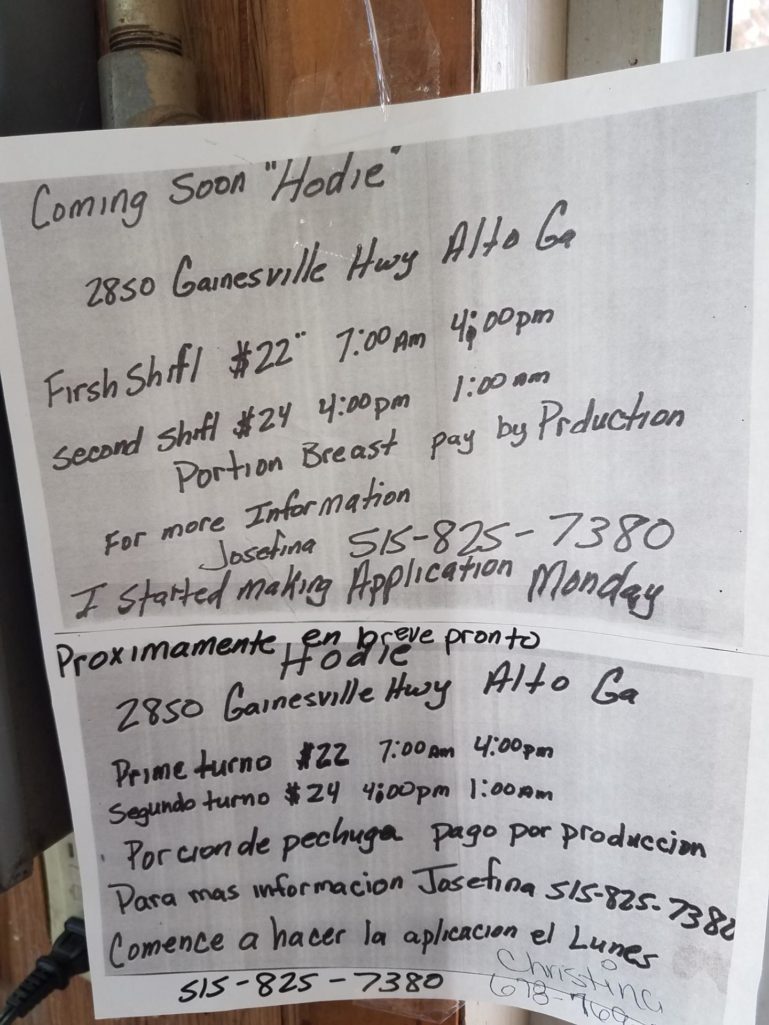 Coming Soon "Hodie"
2850 Gainesville Hwy Alto Ga
Firsh Shift $22" 7:00 Am 4:00pm
Second Shift $24 4:00pm 1:00 am
Portion Breast pay by Prduction
For more Information
Josefina 515-825-7380
I Started making Application Monday
Proximamente en breve pronto
Hodie
2850 Gainesville Hwy Alto Ga
Prime turno $22 7:00 Am 4:00pm
Segundo turno $24 4:00pm 1:00 am
Porcion de pechuga pago por produccion
Para mas informacion Josefina 515-825-7380
Comence a hacer la aplicacion el Lunes
515-825-7380
Christina
678-769